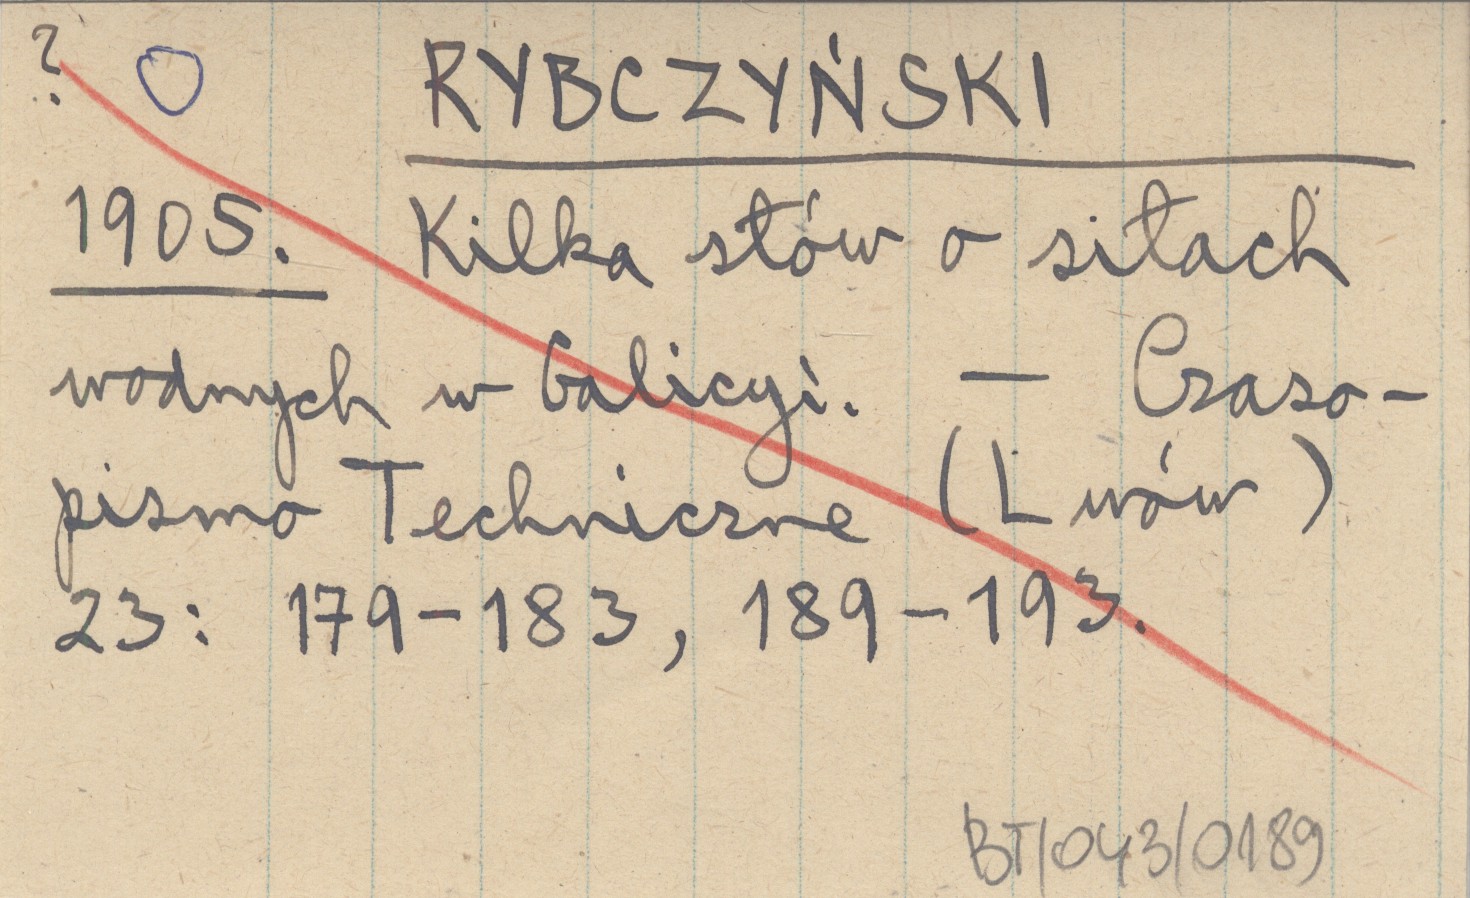 ?
RYBCZYŃSKI
1905. Kilka słów o siłach
wodnych w Galicyi. — Czaso-
pismo Techniczne (Lwów)
23: 179-183, 189-193.
BT/043/0189